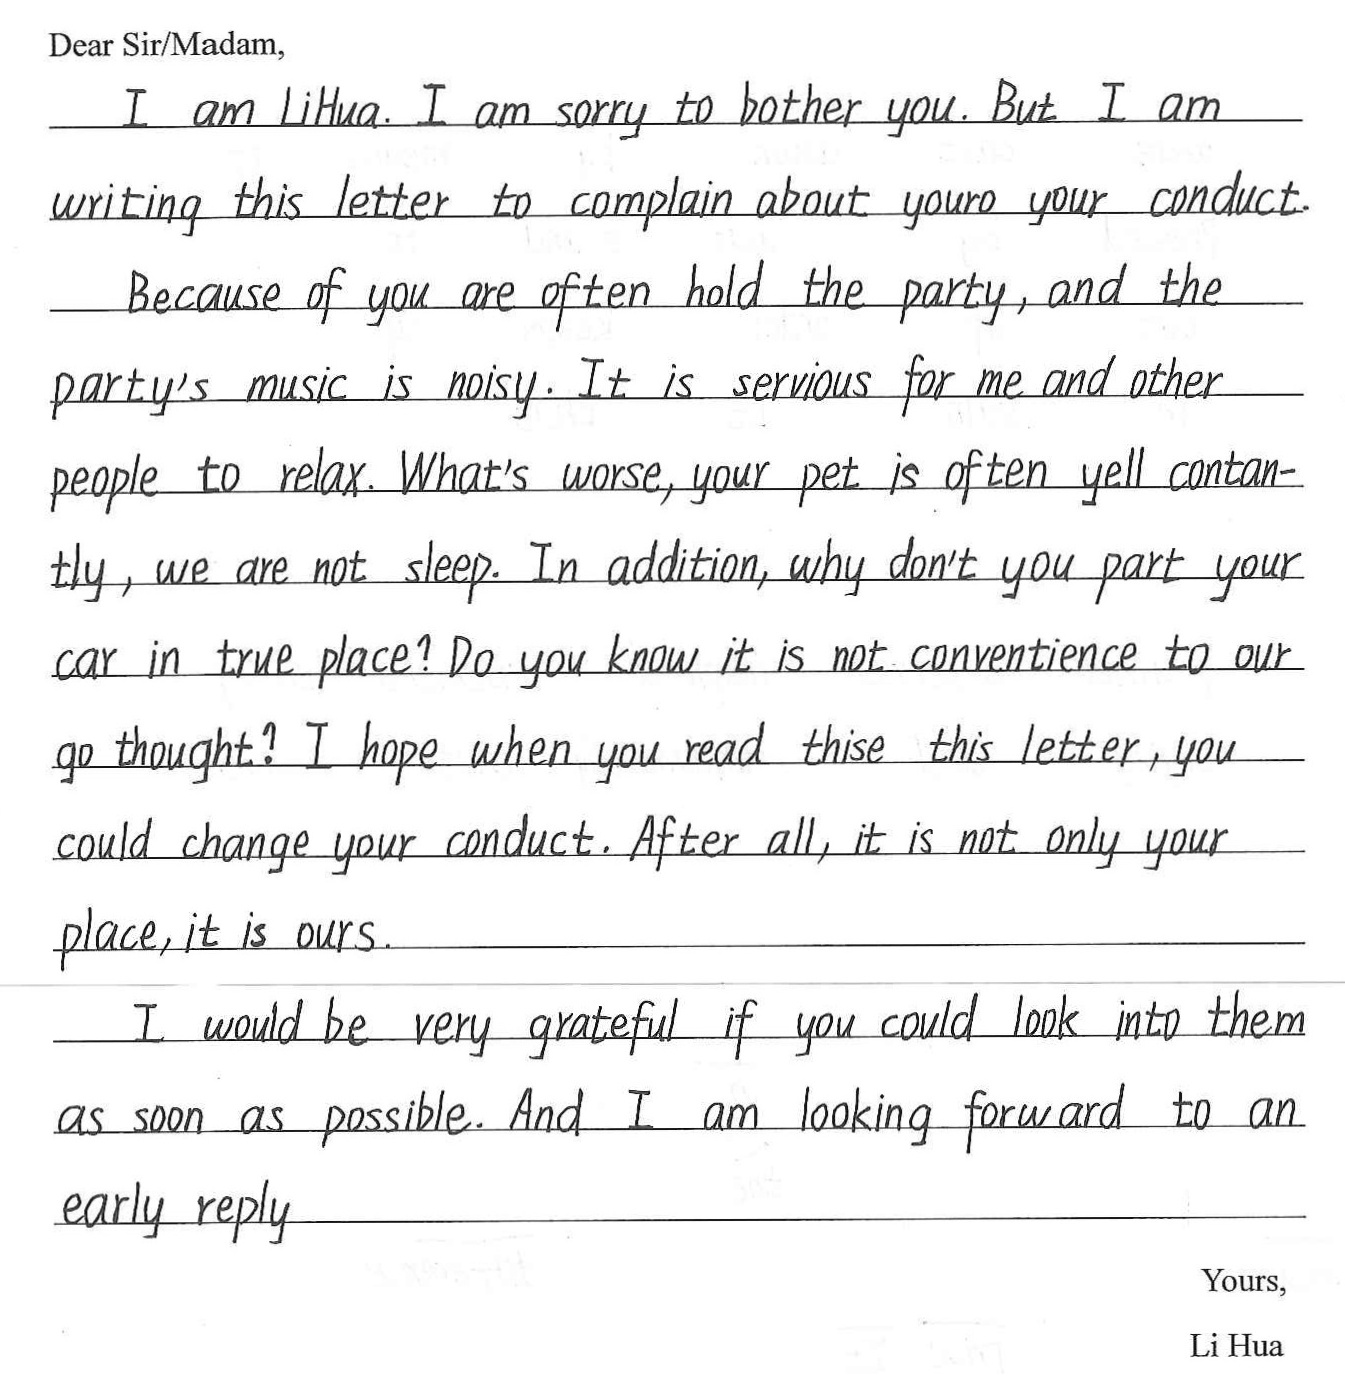 Dear Sir/Madam,
I am LiHua. I am sorry to bother you. But I am
writing this letter to complain about youro your conduct.
Because of you are often hold the party, and the
party's music is noisy. It is servious for me and other
people to relax. What's worse, your pet is often yell contan-
tly, we are not sleep. In addition, why don't you part your
car in true place? Do you know it is not conventience to our
go thought? I hope when you read thise this letter, you
could change your conduct. After all, it is not only your
place, it is ours.
I would be very grateful if you could look into them
as soon as possible. And I am looking forward to an
early reply
Yours,
Li Hua